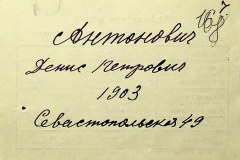 Антонович
Денис Петрович
1903
Севастопольская 49